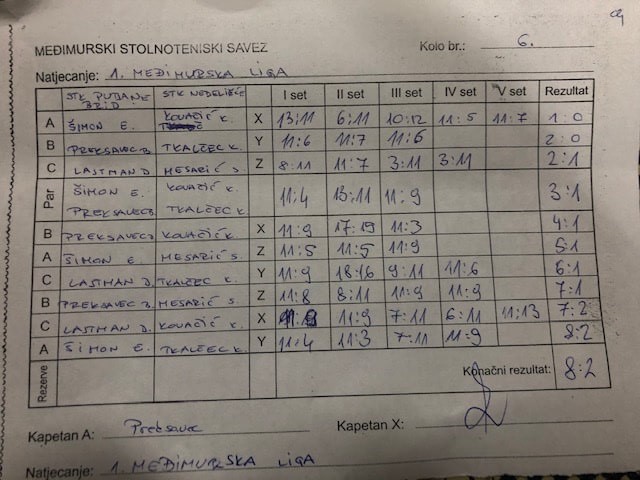 MEĐIMURSKI STOLNOTENISKI SAVEZ Kolo br.: 6.
Natjecanje: 1. MEĐIMURSKA LIGA
STK PUTJANE BRID STK NEDELIŠĆE I set II set III set IV set V set Rezultat
A ŠIMON E. KOVAČIĆ K. X 13:11 6:11 10:12 11:5 11:7 1:0
B PREKSAVEC B. TKALČEC K. Y 11:6 11:7 11:6 2:0
C LASTMAN D. MESARIĆ S. Z 8:11 11:7 3:11 3:11 2:1
Par ŠIMON E. KOVAČIĆ K. 11:4 13:11 11:9 3:1
PREKSAVEC B. TKALČEC K.
B PREKSAVEC B. KOVAČIĆ K. X 11:9 17:15 11:3 4:1
A ŠIMON E. MESARIĆ S. Z 11:5 11:5 11:9 5:1
C LASTMAN D. TKALČEC K. Y 11:9 18:16 9:11 11:6 6:1
B PREKSAVEC B. MESARIĆ S. Z 11:8 8:11 11:9 11:9 7:1
C LASTMAN D. KOVAČIĆ K. X 11:9 7:11 6:11 11:13 7:2
A ŠIMON E. TKALČEC K. Y 11:4 11:3 7:11 11:9 8:2
Rezerve Konačni rezultat: 8:2
Kapetan A: Preksavec Kapetan X:
Natjecanje: 1. MEĐIMURSKA LIGA